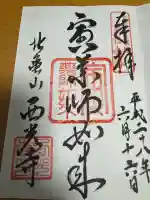 奉拝
平成二十八年
六月十六日
寅薬師如来
北亀山
西光寺